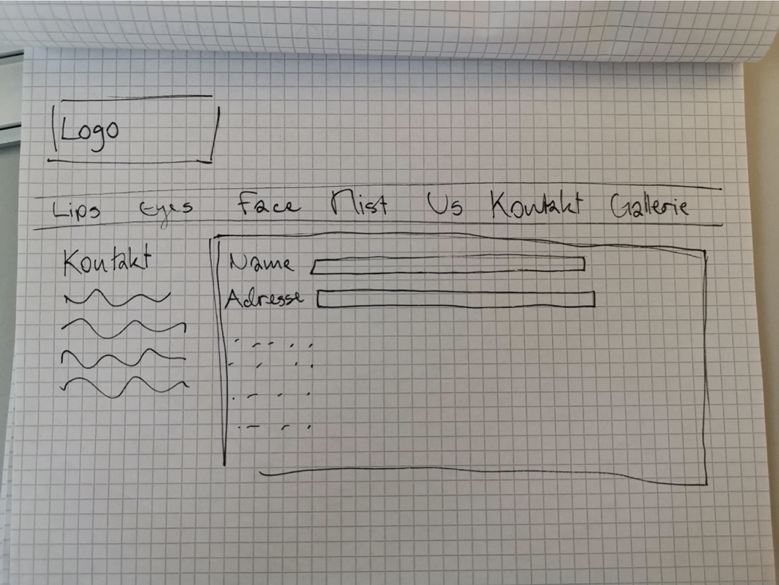 Logo
Lips Eyes Face Mist Us Kontakt Gallerie
Kontakt
Name
Adresse